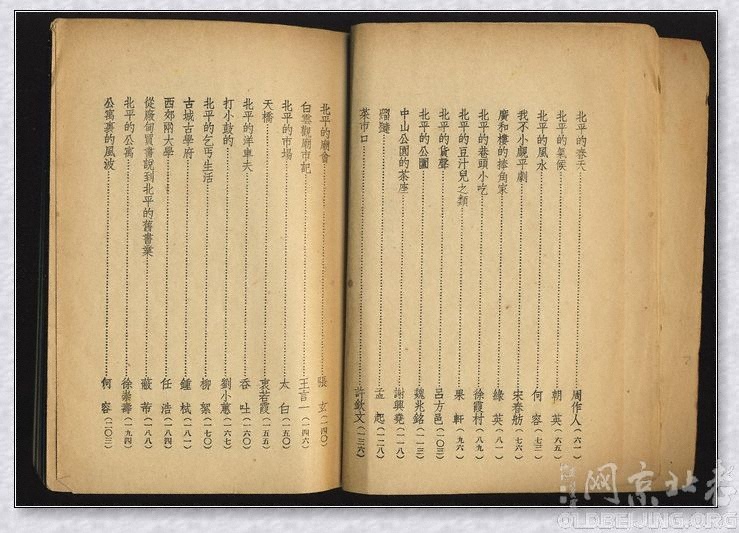 北平的春天……周作人(六一)
北平的氣候……朝英(六五)
北平的風水……何容(七三)
我不小覷平劇……宋春舫(七六)
廣和樓的捧角家……綠英(八一)
北平的巷頭小吃……徐霞村(八九)
北平的豆汁兒之類……果軒(九六)
北平的貨聲……呂方邑(一〇三)
北平的公園……魏兆銘(一一三)
中山公園的茶座……謝興堯(一一八)
縫……孟起(一二八)
菜市口……許欽文(一三六)
北平的廟會……張玄(一四〇)
白雲觀廟市記……王言一(一四六)
北平的市場……太白(一五〇)
天橋……衷若霞(一五五)
北平的洋車夫……吞吐(一六〇)
打小鼓的……劉小蕙(一六七)
北平的乞丐生活……柳絮(一七〇)
古城古學府……鍾棫(一八一)
西郊兩大學……任浩(一八四)
從廠甸買書說到北平的舊書業……蔽芾(一八八)
北平的公寓……徐崇壽(一九四)
公寓裏的風波……何容(二〇三)
老北京网
OLDBEIJING.ORG